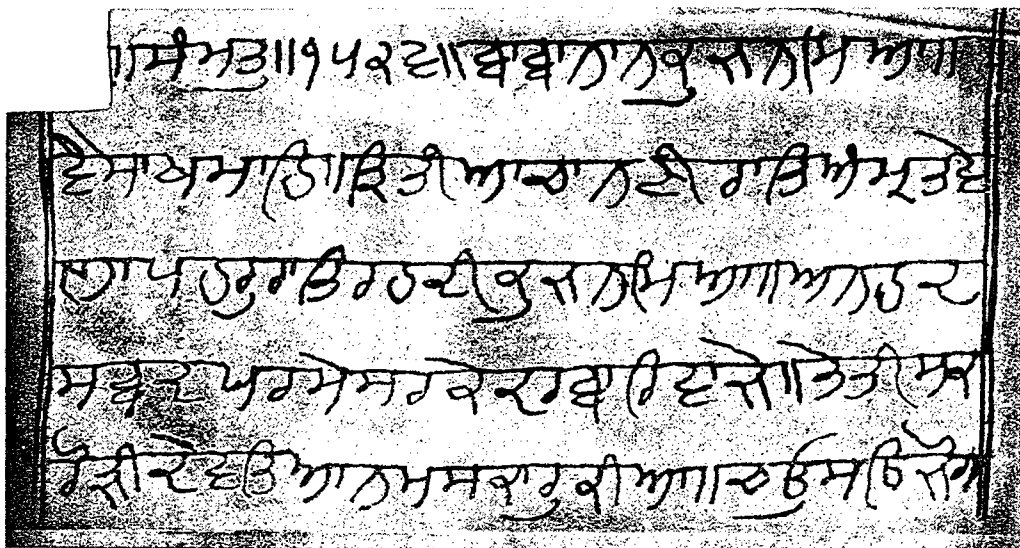 ॥ਸੰਮਤੁ॥੧੫੨੬॥ਬਾਬਾ ਨਾਨਕੁ ਜਨਮਿਆ॥
ਵੈਸਾਖ ਮਾਹਿ॥ਤ੍ਰਿਤੀਆ ਚਾਨਣੀ ਰਾਤਿ ਅੰਮ੍ਰਤ ਵੇ
ਲਾ ਪਹਰੁ ਰਾਤਿ ਰਹਦੀ ਕੁ ਜਨਮਿਆ॥ਅਨਹਦ
ਸਬਦ ਪਰਮੇਸਰ ਕੇ ਦਰਬਾਰਿ ਵਾਜੇ॥ਤੇਤੀਸ ਕ
ਰੋੜੀ ਦੇਵਤਿਆ ਨਮਸਕਾਰੁ ਕੀਆ॥ਚਉਸਠਿ ਜੋਗ